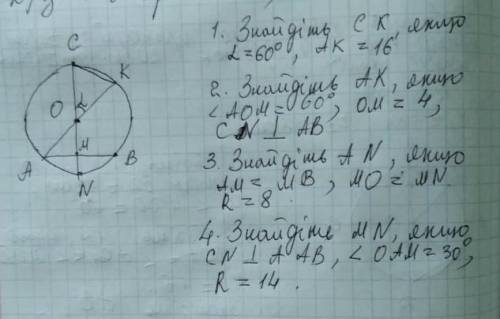 1. Знайдіть CK, якщо
α=60°, AK=16
2. Знайдіть AK, якщо
∠AOM=60°, OM=4,
CN ⊥ AB
3. Знайдіть AN, якщо
AM=MB, MO=MN.
R=8.
4. Знайдіть MN, якщо
CN ⊥ A AB, ∠OAM=30°,
R=14.
C
K
O
α
M
A
B
N